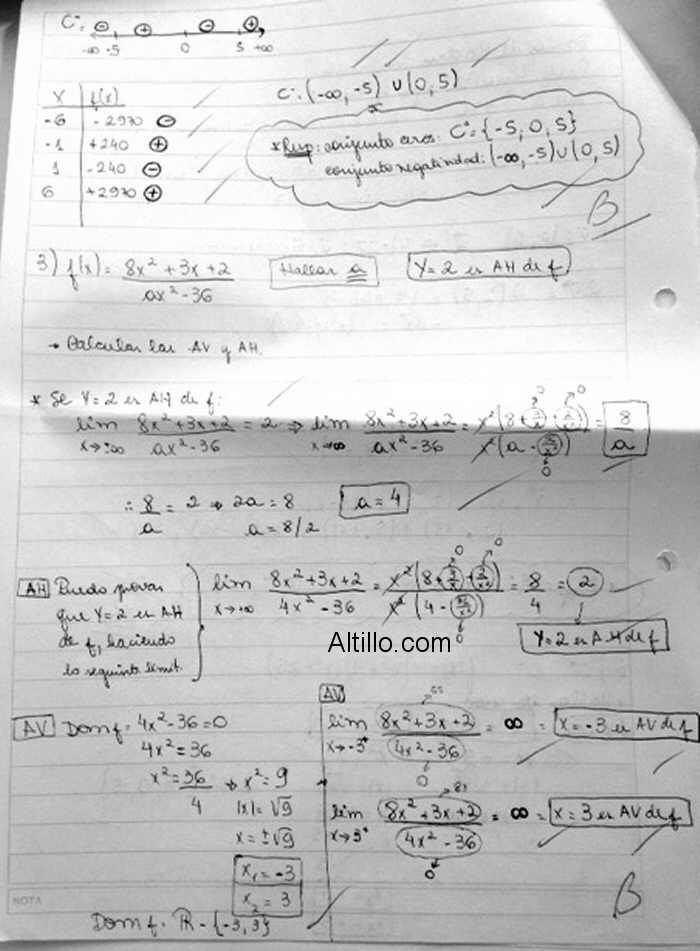 C⁻:
⊖ ⊕ ⊖ ⊕
-∞ -5 0 5 +∞
x f(x)
-6 -2970 ⊖
-1 +240 ⊕
1 -240 ⊖
6 +2970 ⊕
C⁻: (-∞, -5) ∪ (0, 5)
* Resp: conjunto ceros: C° = {-5, 0, 5}
conjunto negatividad: (-∞, -5) ∪ (0, 5)
B
3) f(x) = (8x² + 3x + 2)/(ax² - 36) Hallar a Y=2 es AH de f
→ Calcular las AV y AH.
* Se Y=2 es AH de f:
lim x→∞ (8x² + 3x + 2)/(ax² - 36) = 2 ⇒ lim x→∞ (8x² + 3x + 2)/(ax² - 36) = x²(8 + 3/x + 2/x²)/x²(a - 36/x²) = 8/a
∴ 8/a = 2 ⇒ 2a = 8 a = 4
a = 8/2
AH Puedo provar
que Y=2 es AH
de f, haciendo
lo seguinte limit.
lim x→∞ (8x² + 3x + 2)/(4x² - 36) = x²(8 + 3/x + 2/x²)/x²(4 - 36/x²) = 8/4 = 2
Y=2 es AH de f
Altillo.com
AV Dom f: 4x² - 36 = 0
4x² = 36
x² = 36/4 ⇒ x² = 9
|x| = √9
x = ±√9
x₁ = -3
x₂ = 3
Dom f: ℝ - {-3, 3}
AV
lim x→-3⁺ (8x² + 3x + 2)/(4x² - 36) = ∞ = x = -3 es AV de f
0
lim x→3⁺ (8x² + 3x + 2)/(4x² - 36) = ∞ = x = 3 es AV de f
0
B
NOTA